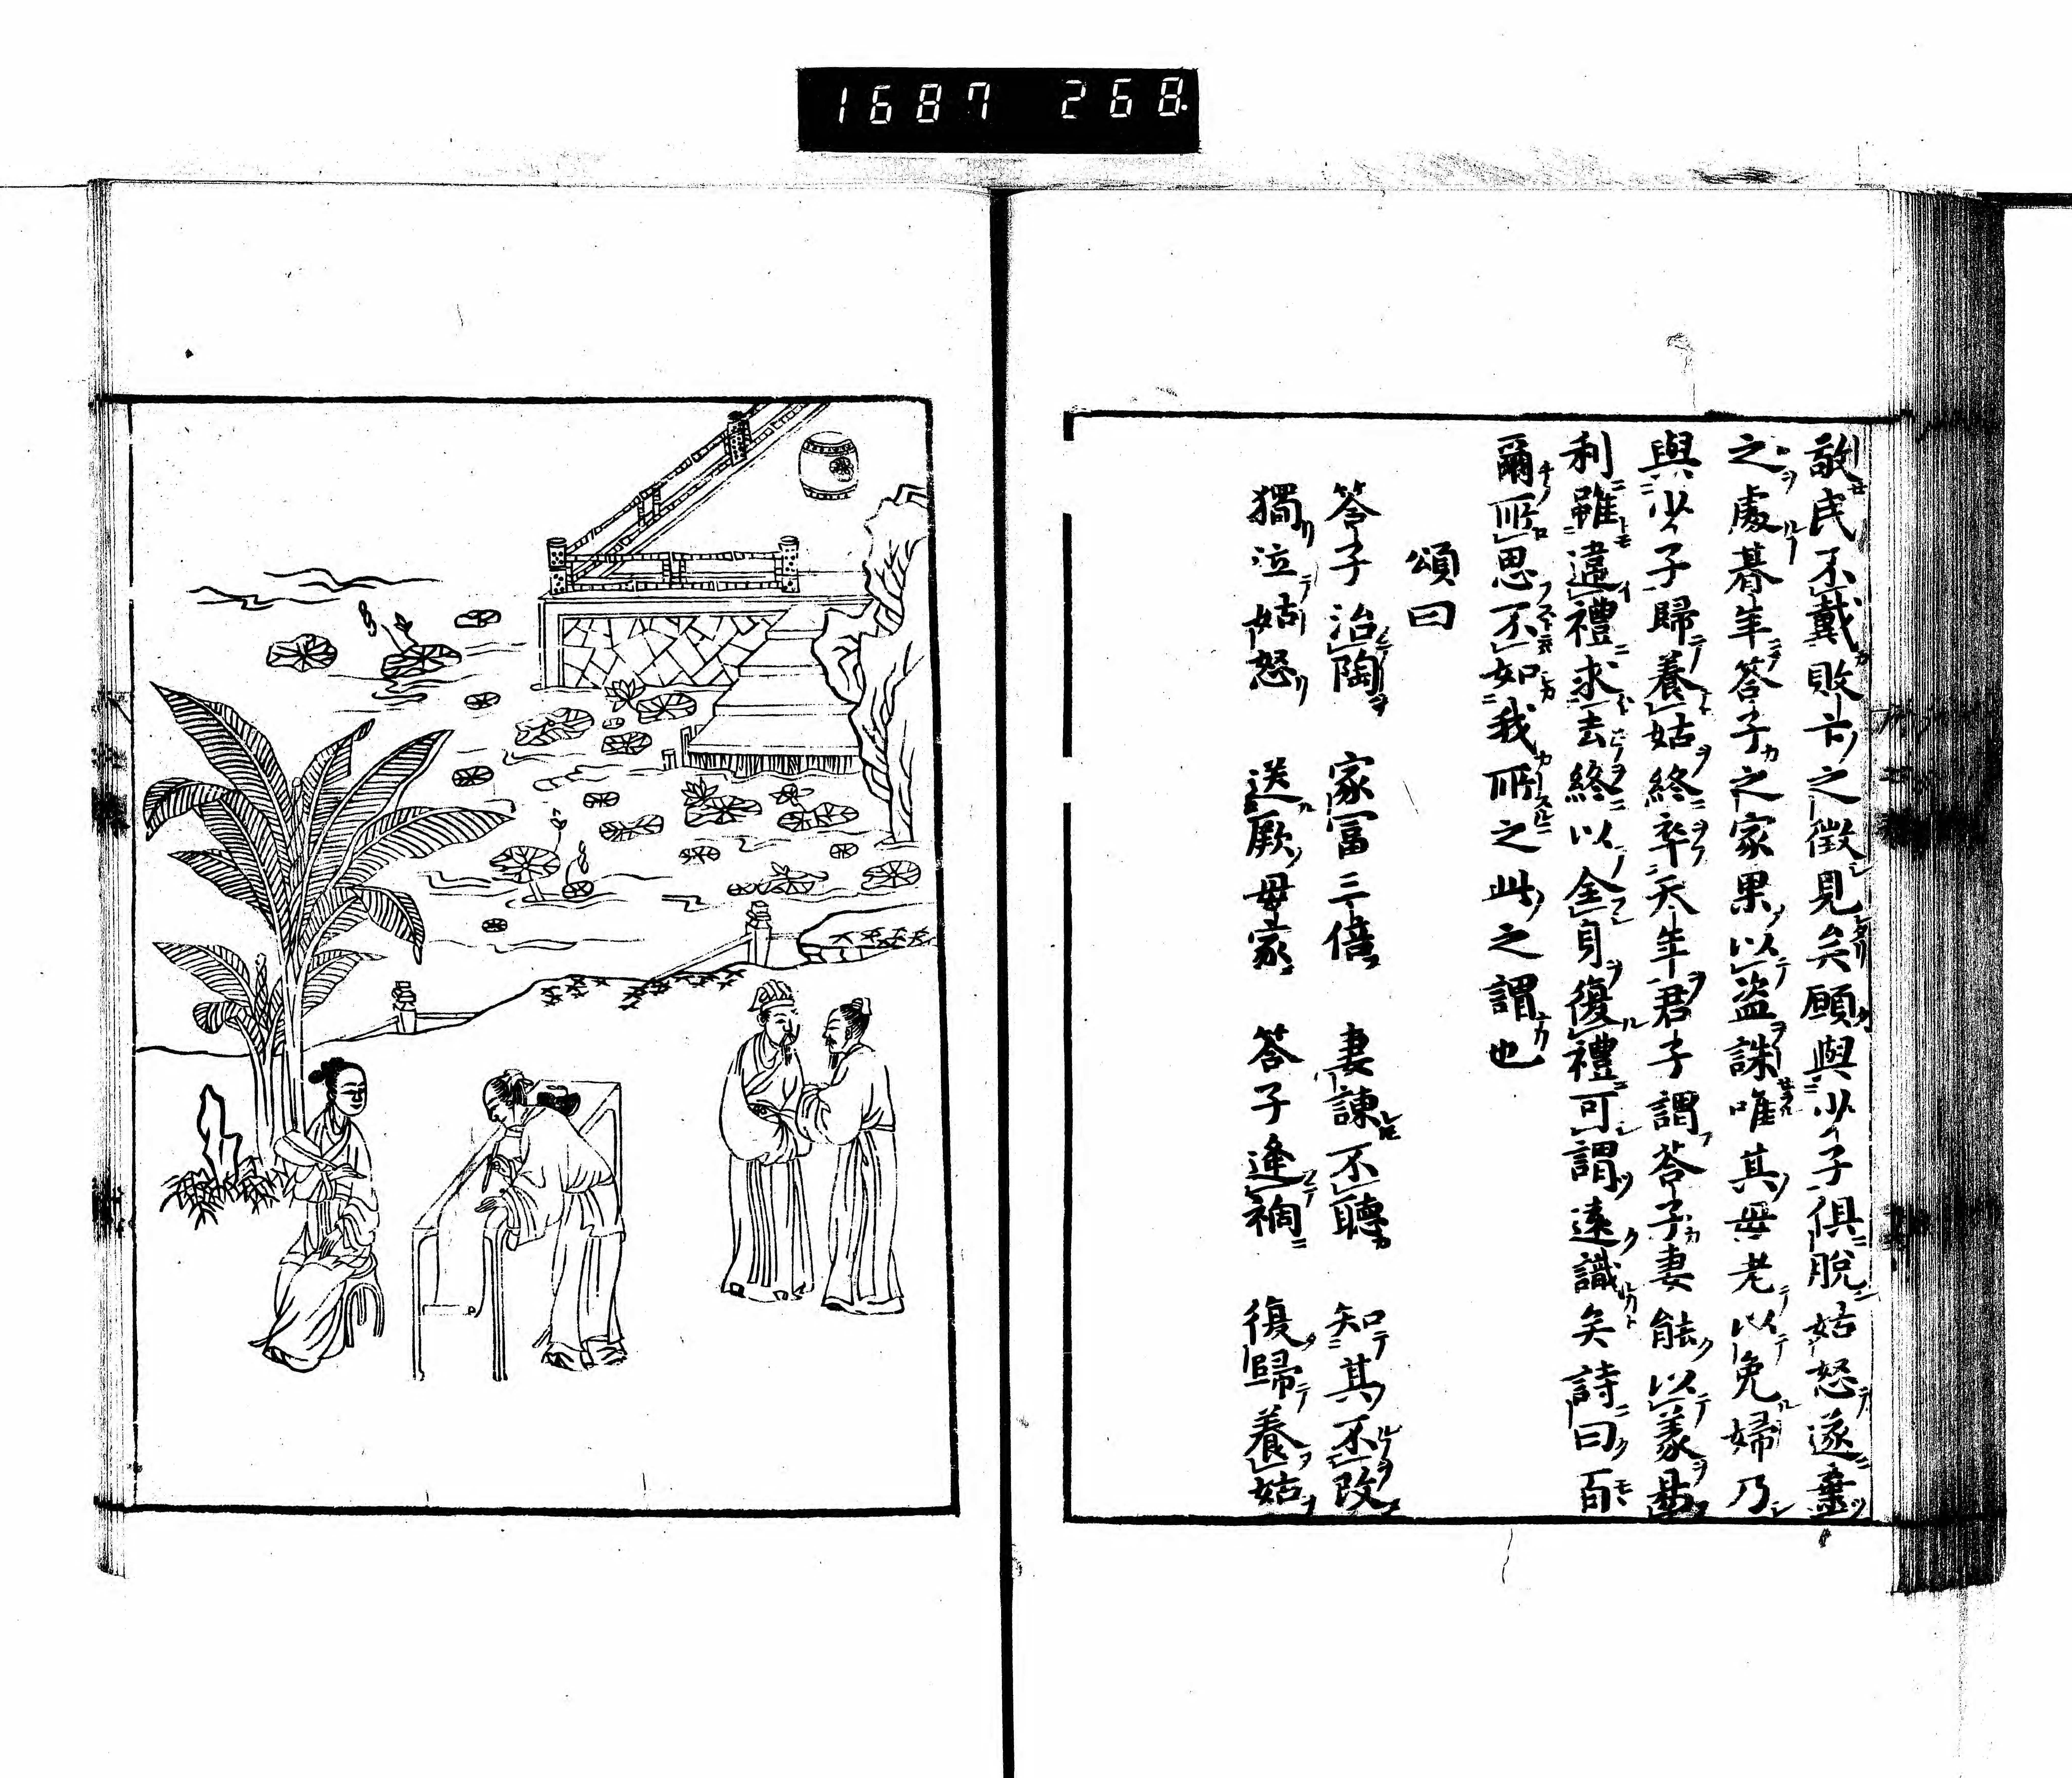 1687 268
敬民不戴敗亡之徴見矣願與少子俱脫姑怒遂棄
之處朞年荅子之家果以盜誅唯其母老以免婦乃
與少子歸養姑終卒天年君子謂荅子妻能以義易
利雖違禮求去終以全身復禮可謂遠識矣詩曰百
爾所思不如我所之此之謂也
頌曰
荅子治陶　家冨三倍　妻諫不聽　知其不改
獨泣姑怒　送厥母家　荅子逢禍　復歸養姑